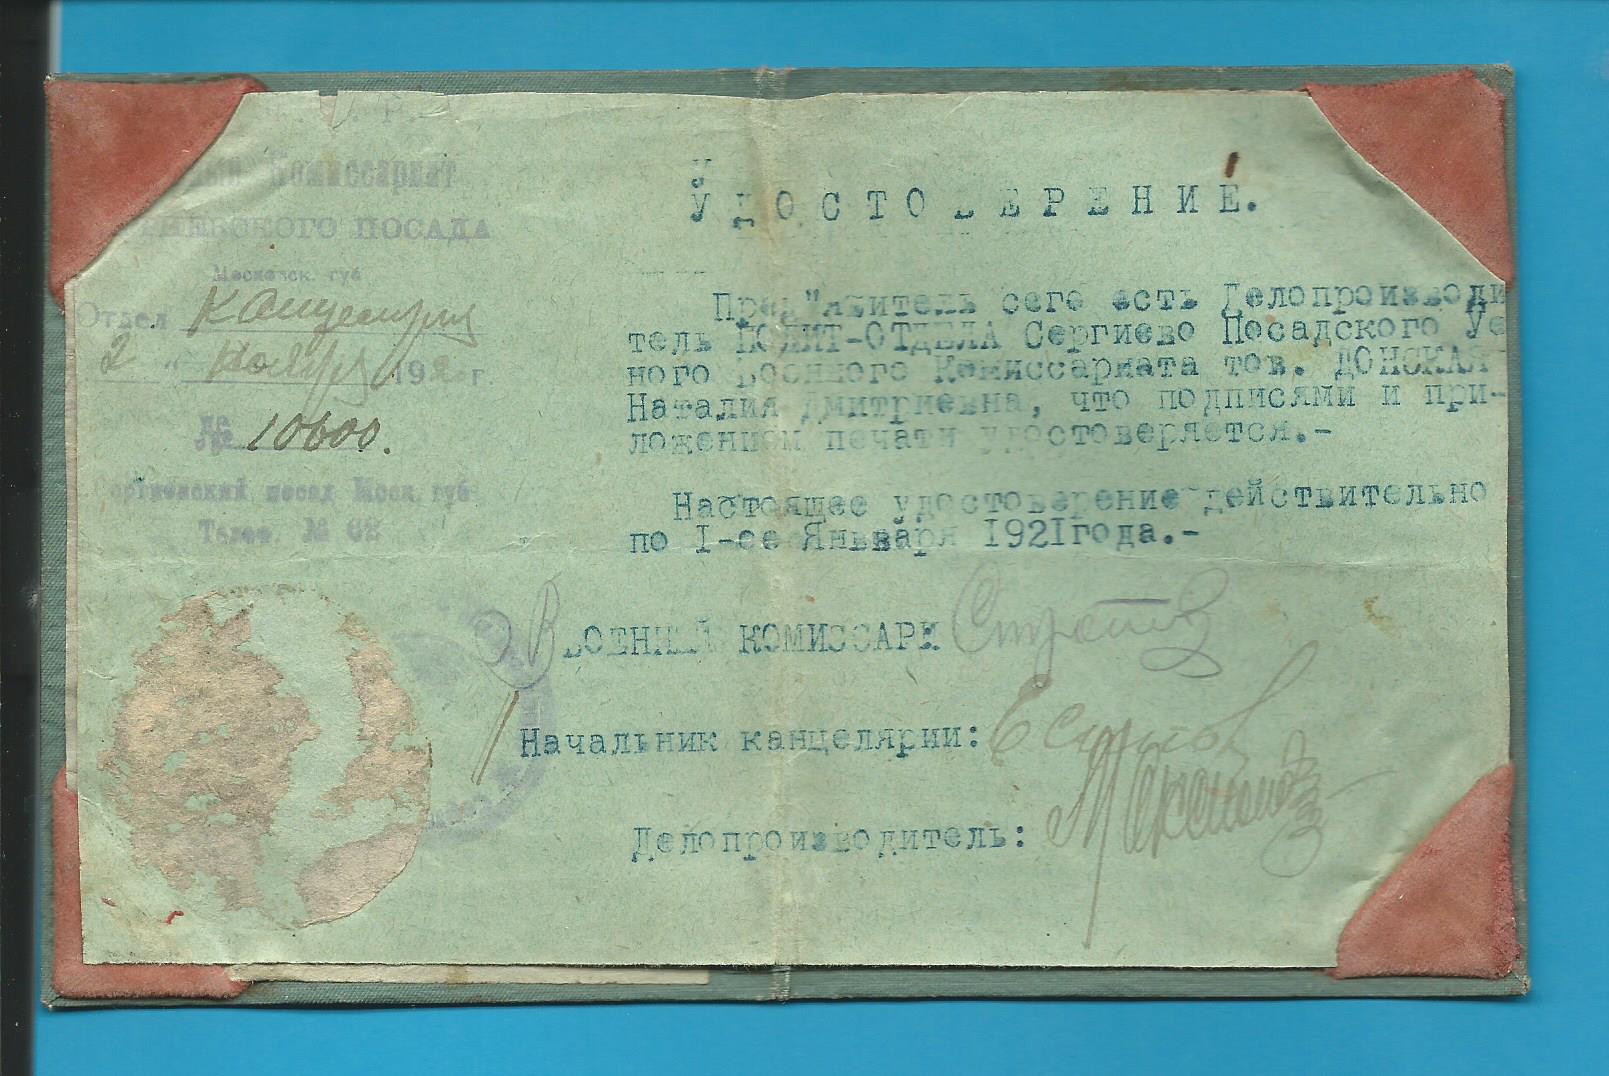 Комиссариат
ПОСАДА
Московск. губ
Отдел Канцелярия
2 " Ноября 192 г.
№ 10600.
Сергиевский посад Моск. губ
Телеф. № 62
УДОСТОВЕРЕНИЕ.
Пред"явитель сего есть Делопроизводи
тель ПОЛИТ-ОТДЕЛА Сергиево Посадского Уе
ного Военного Комиссариата тов. ДОНСКАЯ
Наталия Дмитриевна, что подписями и при-
ложением печати удостоверяется.-
Настоящее удостоверение действительно
по I-ое Января 1921года.-
ВОЕННЫЙ КОМИССАРИ
Начальник канцелярии:
Делопроизводитель: